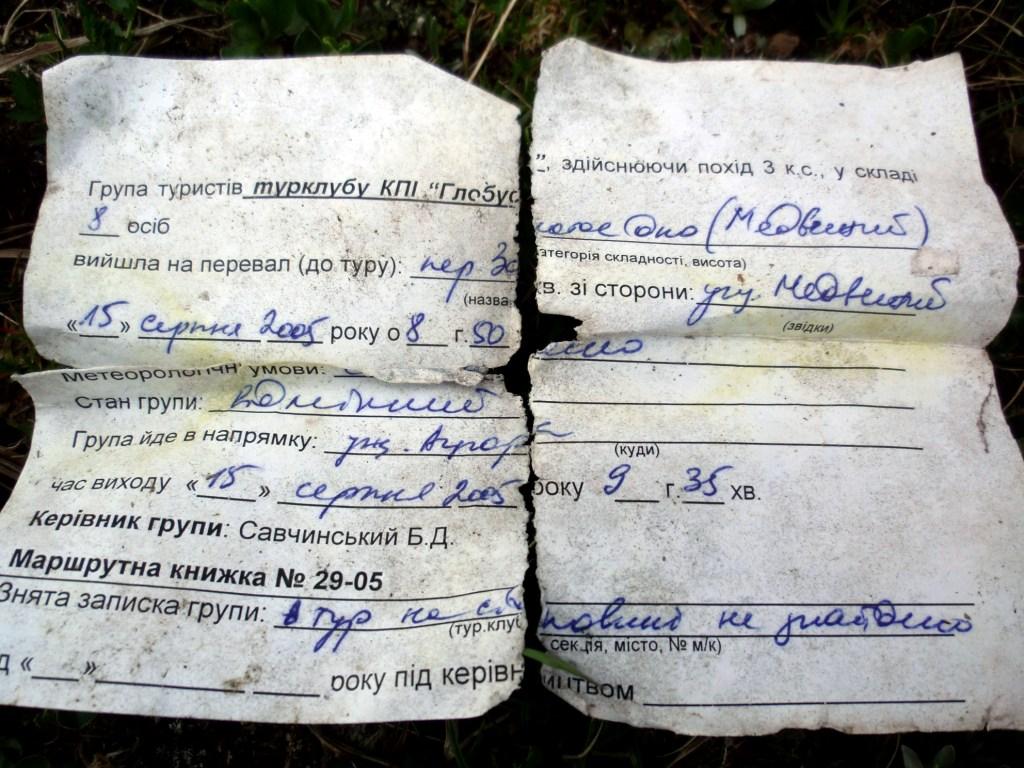 Група туристів турклубу КПІ "Глобус", здійснюючи похід 3 к.с., у складі
8 осіб
вийшла на перевал (до туру): пер (Медвещий)
(назва, категорія складності, висота)
«15» серпня 2005 року о 8 г. 50 хв. зі сторони: ущ. Медвещий
(звідки)
Метеорологічні умови:
Стан групи: відмінний
Група йде в напрямку: ущ.
(куди)
час виходу «15» серпня 2005 року 9 г. 35 хв.
Керівник групи: Савчинський Б.Д.
Маршрутна книжка № 29-05
Знята записка групи: тур на не знайдено
(тур.клуб, секція, місто, № м/к)
д «___» ______ ___ року під керівництвом